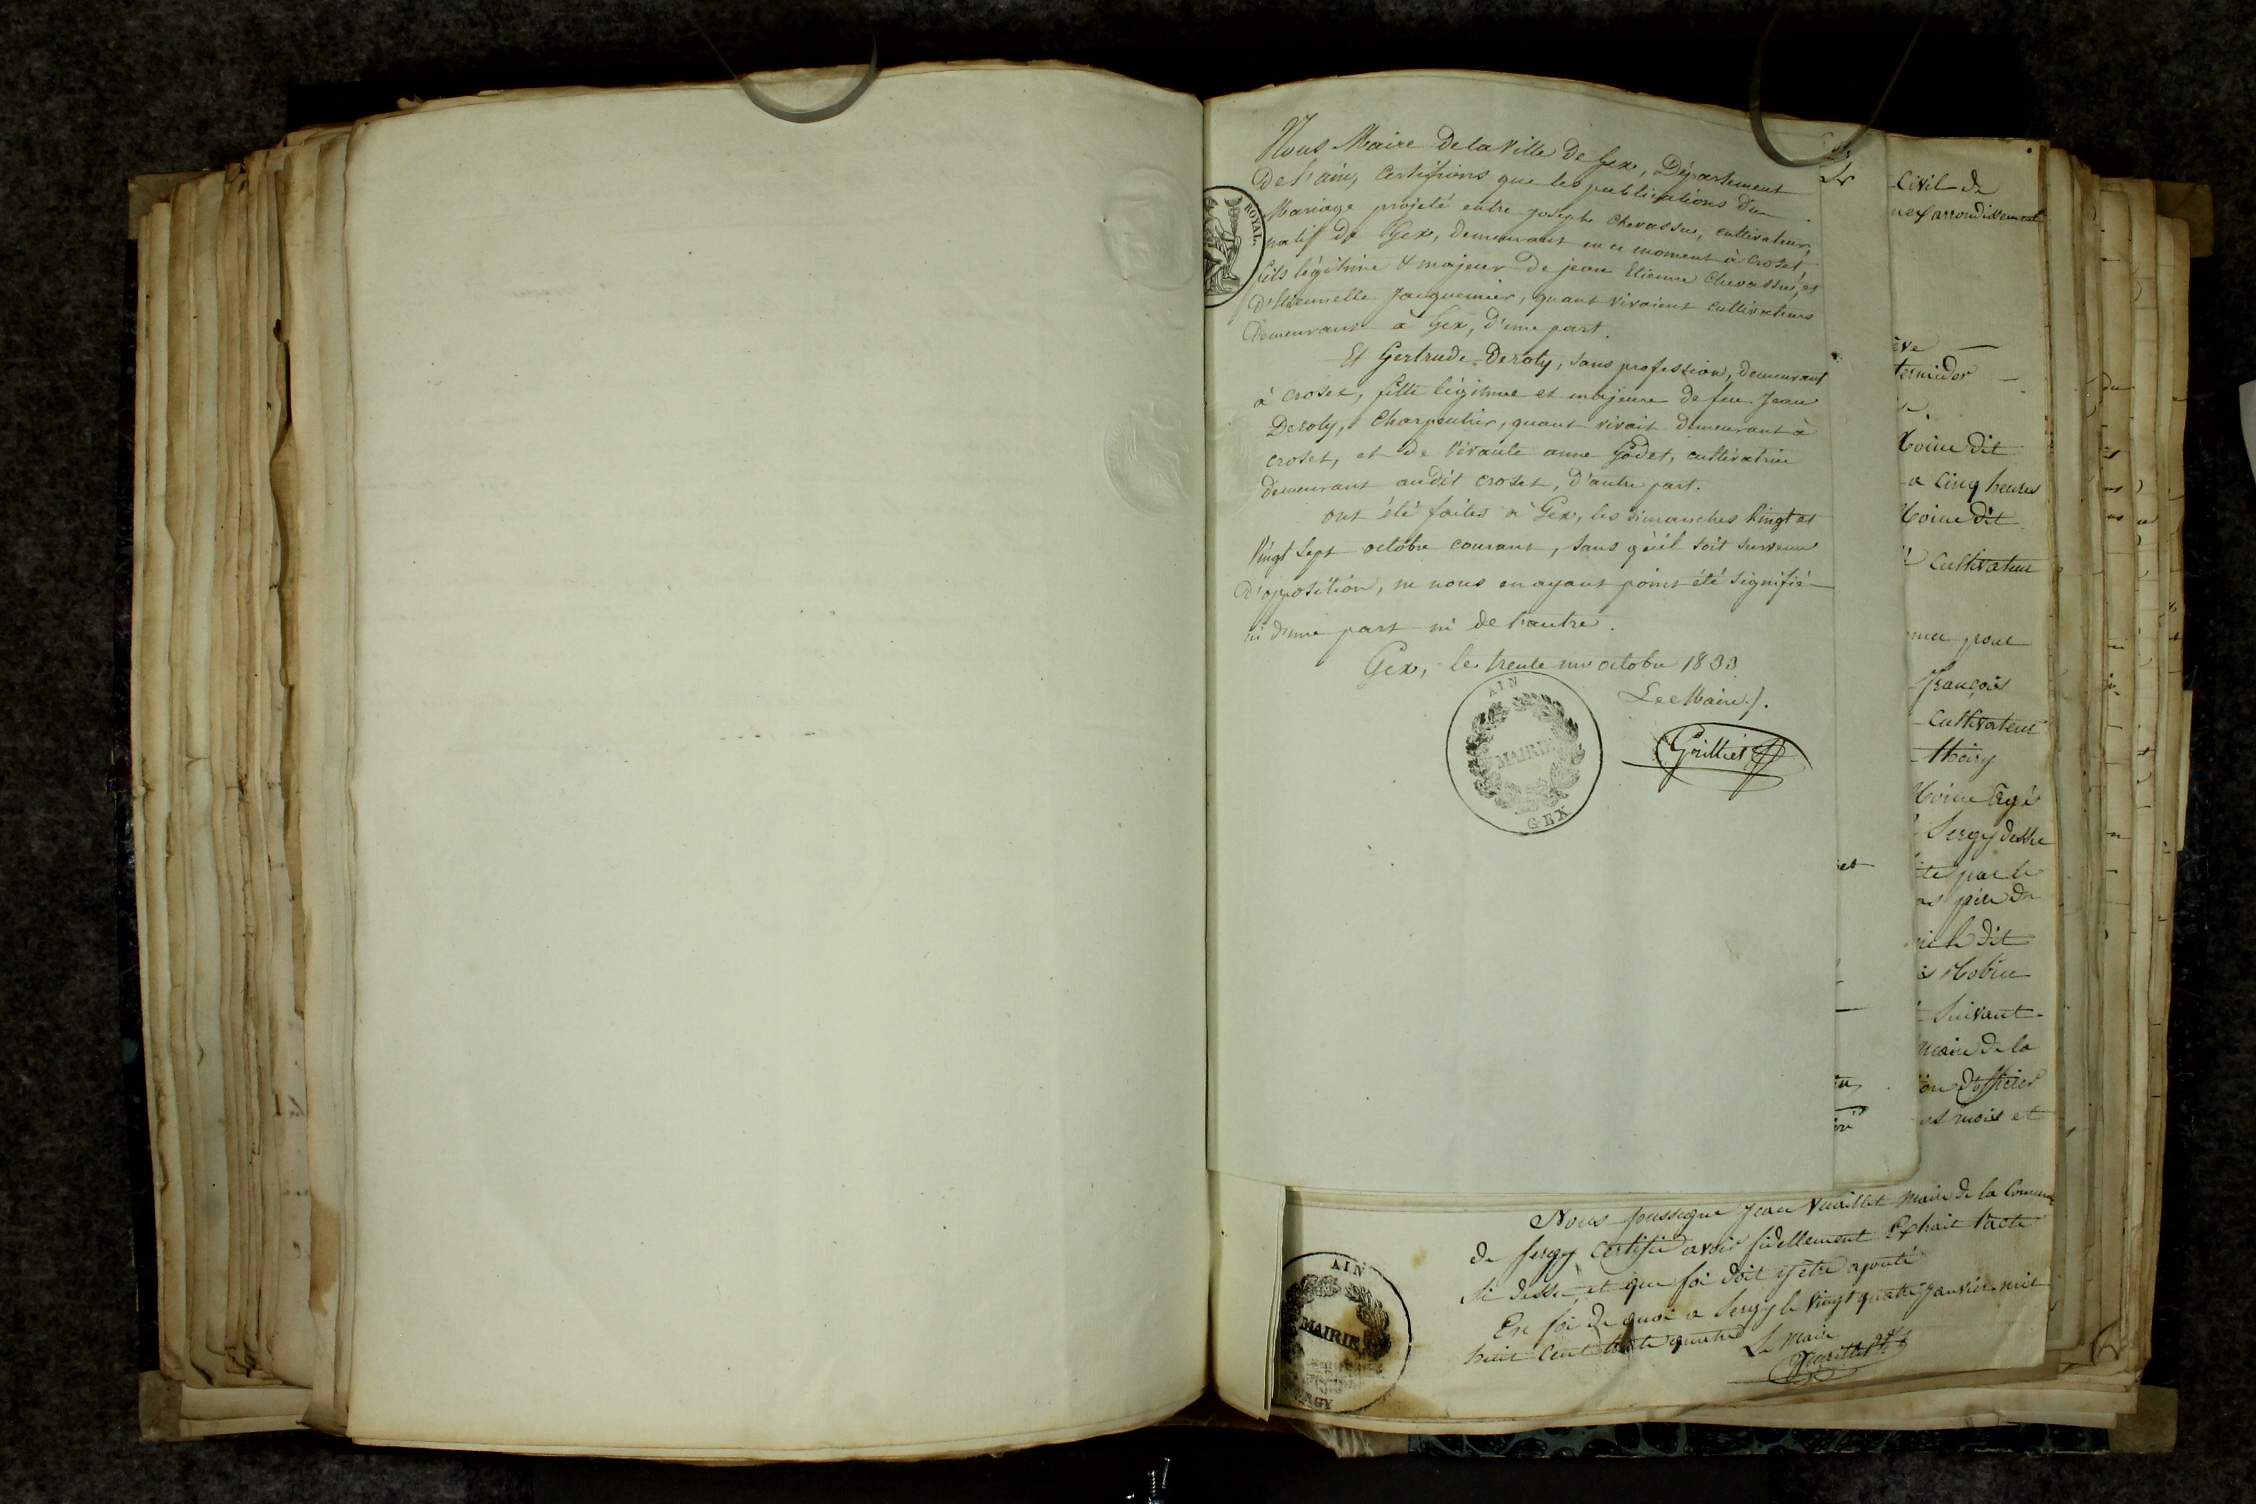 Nous Maire de la Ville de Gex, Département
De l'ain, Certifions que les publications du
Mariage projeté entre joseph Chevassu, cultivateur,
natif de Gex, demeurant en ce moment à Croset,
fils légitime & majeur de jean Etienne Chevassu, et
D'Etiennette Jacquemier, quant vivaient cultivateurs
Demeurant à Gex, d'une part.
Et Gertrude Deroty, sans profession, demeurant
à croset, fille légitime et majeure de feu Jean
Deroty, Charpentier, quant vivait demeurant à
croset, et de vivante anne Godet, cultivatrice
demeurant audit croset, D'autre part.
ont été faites à Gex, les dimanches Vingt et
Vingt Sept octobre courant, sans qu'il soit survenu
d'opposition, ne nous en ayant point été signifié
ni d'une part ni de l'autre.
Gex, le trente un octobre 1833
Le Maire /.
Grilliet
AIN
MAIRIE
GEX
ROYAL.
Civil de
arrondissement
ève
termidor
Moine dit
a Cinq heures
Moine dit
Cultivateur
pour
françois
Cultivateur
thoiry
Moine agé
Sergy dessu
te par le
père de
le dit
Mobin
Suivant
Maire de la
d'officier
mois et
Nous soussigné Jean Vuaillet Maire de la Commune
de Sergy Certifie avoir fidellement Extrait l'acte
Si dessu et que foi doit y etre ajouté
En foi de quoi a Sergy le Vingt quatre Janvier mil
huit Cent trente quatre
Le Maire
Vuaillet
AIN
MAIRIE
RGY